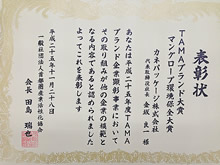 表彰状
TAMAブランド大賞
マングローブ環境保全大賞
カネパッケージ株式会社
代表取締役社長 金坂 良一 様
あなたは平成二十五年度TAMA
ブランド企業顕彰事業において
その取り組みが他の企業の規範と
なる内容であると認められました
よってこれを表彰します
平成二十五年十一月二十八日
一般社団法人首都圏産業活性化協会
会長 田島 瑞也